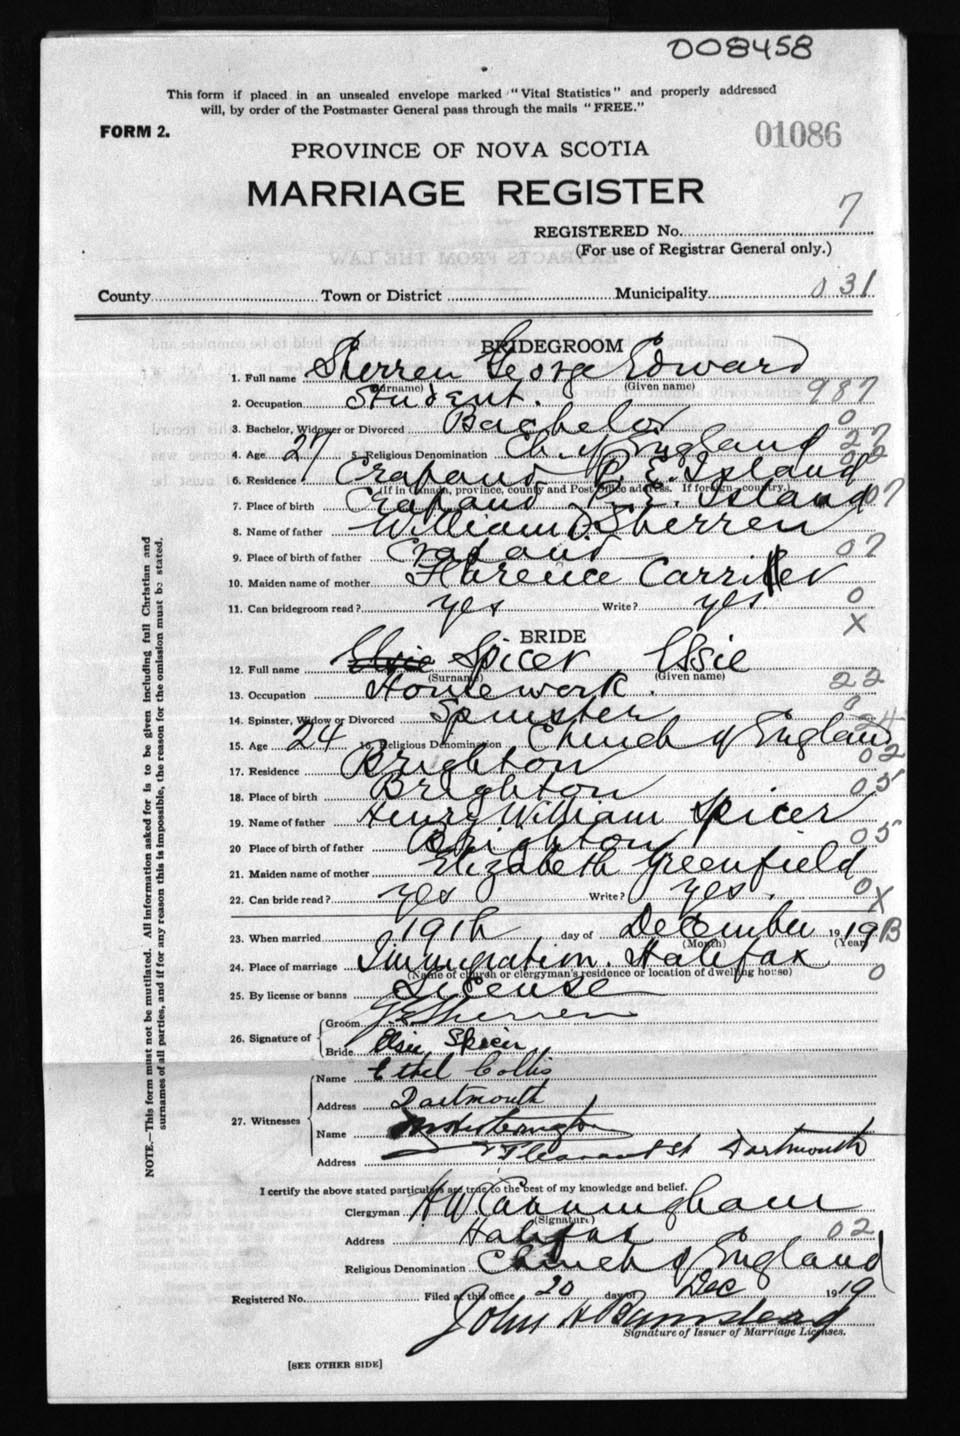 008458
This form if placed in an unsealed envelope marked "Vital Statistics" and properly addressed
will, by order of the Postmaster General pass through the mails "FREE."
FORM 2.
01086
PROVINCE OF NOVA SCOTIA
MARRIAGE REGISTER
REGISTERED No. 7
(For use of Registrar General only.)
County Town or District Municipality 031
BRIDEGROOM
1. Full name Sherren George Edward
(Surname) (Given name)
2. Occupation Student. 987
3. Bachelor, Widower or Divorced Bachelor 0
4. Age 27 5. Religious Denomination Ch. of England 27
6. Residence Crapaud P. E. Island 22
(If in Canada, province, county and Post Office address. If foreign country.)
7. Place of birth Crapaud P. E. Island 07
8. Name of father William D. Sherren
9. Place of birth of father Crapaud 07
10. Maiden name of mother Florence Carrier
11. Can bridegroom read? yes Write? yes. 0
X
BRIDE
12. Full name Elsie Spicer Elsie
(Surname) (Given name)
13. Occupation Housework. 22
14. Spinster, Widow or Divorced Spinster 0
15. Age 24 16. Religious Denomination Church of England 24
17. Residence Brighton 02
18. Place of birth Brighton 05
19. Name of father Henry William Spicer
20 Place of birth of father Brighton 05
21. Maiden name of mother Elizabeth Greenfield
22. Can bride read? yes Write? yes. 0X
23. When married 19th day of December 1919 B
(Month) (Year)
24. Place of marriage Immigration. Halifax 0
(Name of church or clergyman's residence or location of dwelling house)
25. By license or banns License
26. Signature of Groom G E Sherren
Bride Elsie Spicer
27. Witnesses Name Ethel Collis
Address Dartmouth
Name
Address Pleasant St Dartmouth
I certify the above stated particulars are true to the best of my knowledge and belief.
Clergyman H W Cunningham
(Signature)
Address Halifax 02
Religious Denomination Church of England
Registered No. Filed at this office 20 day of Dec 1919
John H Barnstead
Signature of Issuer of Marriage Licenses.
[SEE OTHER SIDE]
NOTE.—This form must not be mutilated. All information asked for is to be given including full Christian and
surnames of all parties, and if for any reason this is impossible, the reason for the omission must be stated.